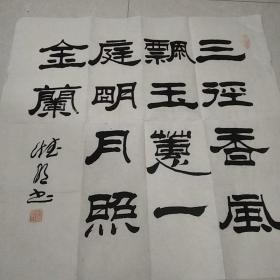 三徑香風
飄玉蕙一
庭明月照
金蘭